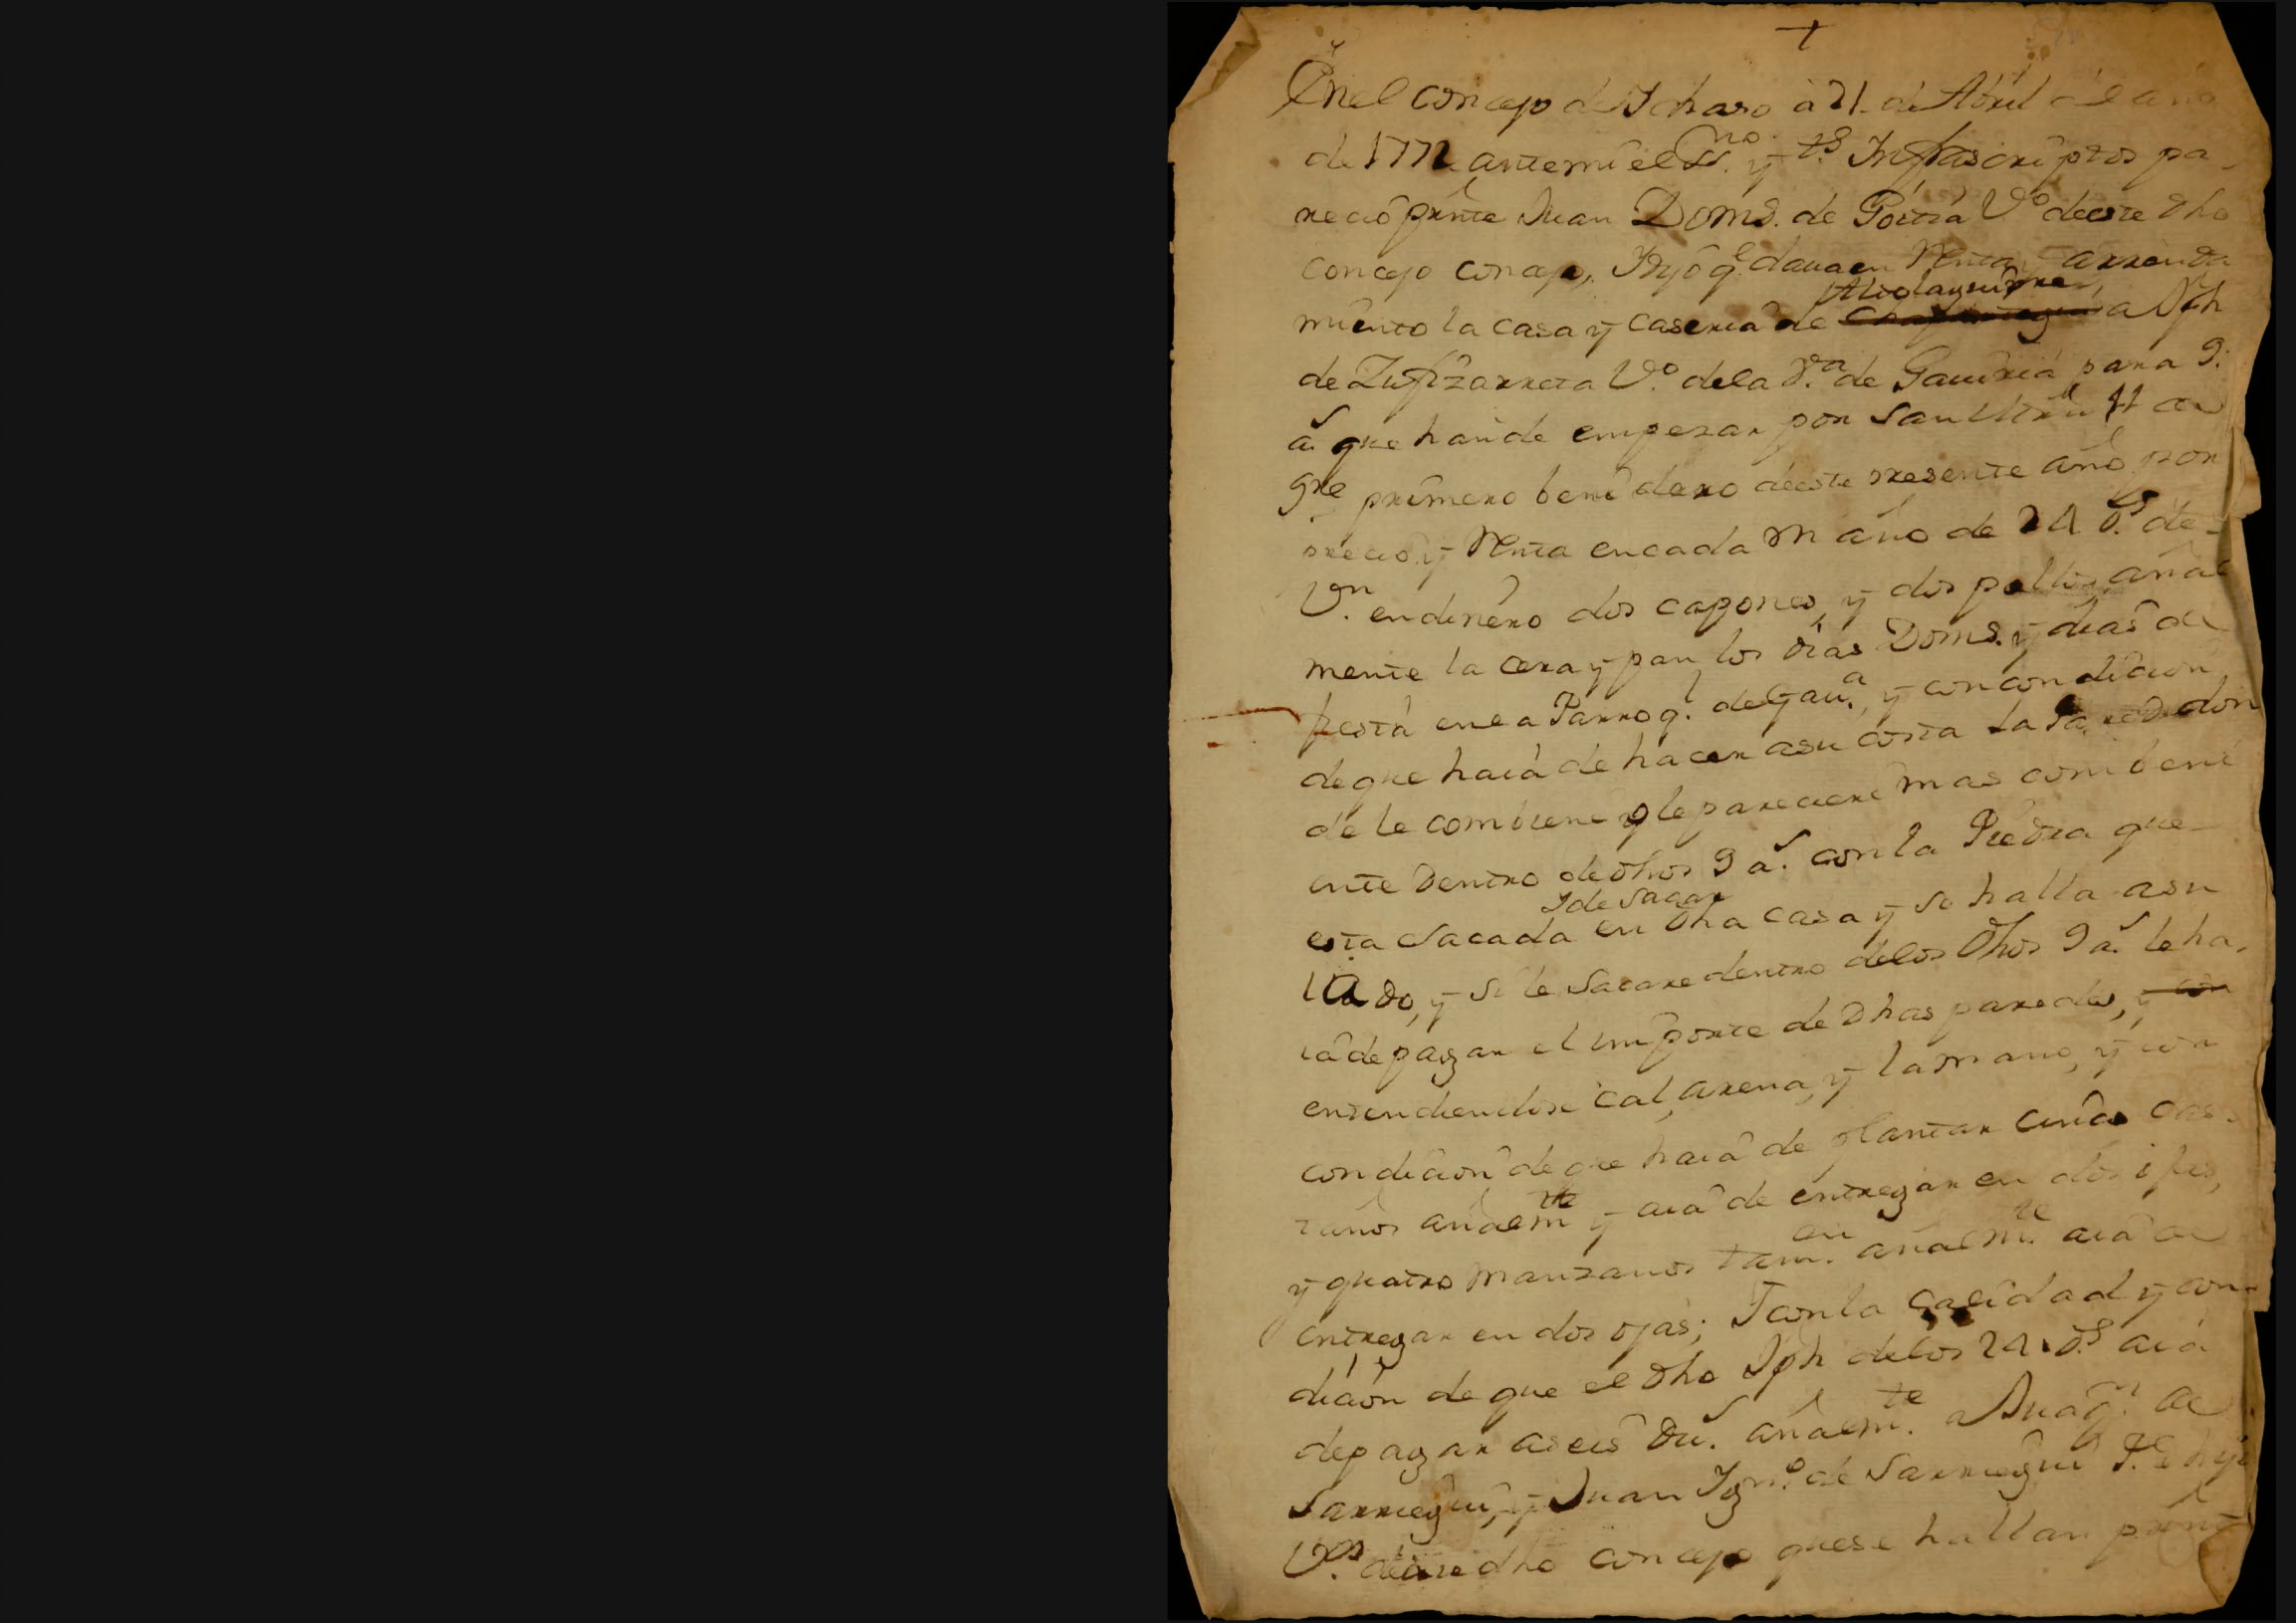 +
En el concejo de Ichaso à 21. de Abril del año
de 1772 ante mi el SSno. y tgs. Infrascriptos pa-
recio prnte Juan Doms. de Goitia Vo. de este dho
concejo concejo, Y dijo qe. daua en Renta y arrenda
miento la casa y caseria de Alvolaguirre, a Jph
de Zufizarreta Vo. dela Va. de Gauiria para 9.
as. que han de empezar por San Mrn. 11 de
9re primero benidero de este presente año por
precio y Renta en cada Vn año de 24 ds. de
Vn. en dinero dos capones, y dos pollos, añal
mente la cera y pan los dias Doms. y dias de
fiesta en la Parroql. de Gaua., y con condicion
de que haia de hacer a su costa la Pared don
de le combiene y le pareciere mas combeni
ente dentro de dhos 9 as. con la Piedra que
y de sacar
esta sacada en dha casa y se halla a su
lado, y si le sacare dentro delos dhos 9 as. le ha-
ia de pagar el importe de dhas paredes, y con
entendiendose cal, arena, y la mano, y con
condicion de que haia de plantar cinco cas-
taños añalmte y aia de entregar en dos ojas,
y quatro manzanos tamen. añalmte. aia de
entregar en dos ojas; Y con la calidad y con-
dicion de que el dho Jph delos 24. ds. aia
de pagar a seis du. añalmte. a Juaqn. de
Sarriegui, y Juan Igno. de Sarriegui Pe. e hijo
Vs. de este dho concejo que se hallan prnte